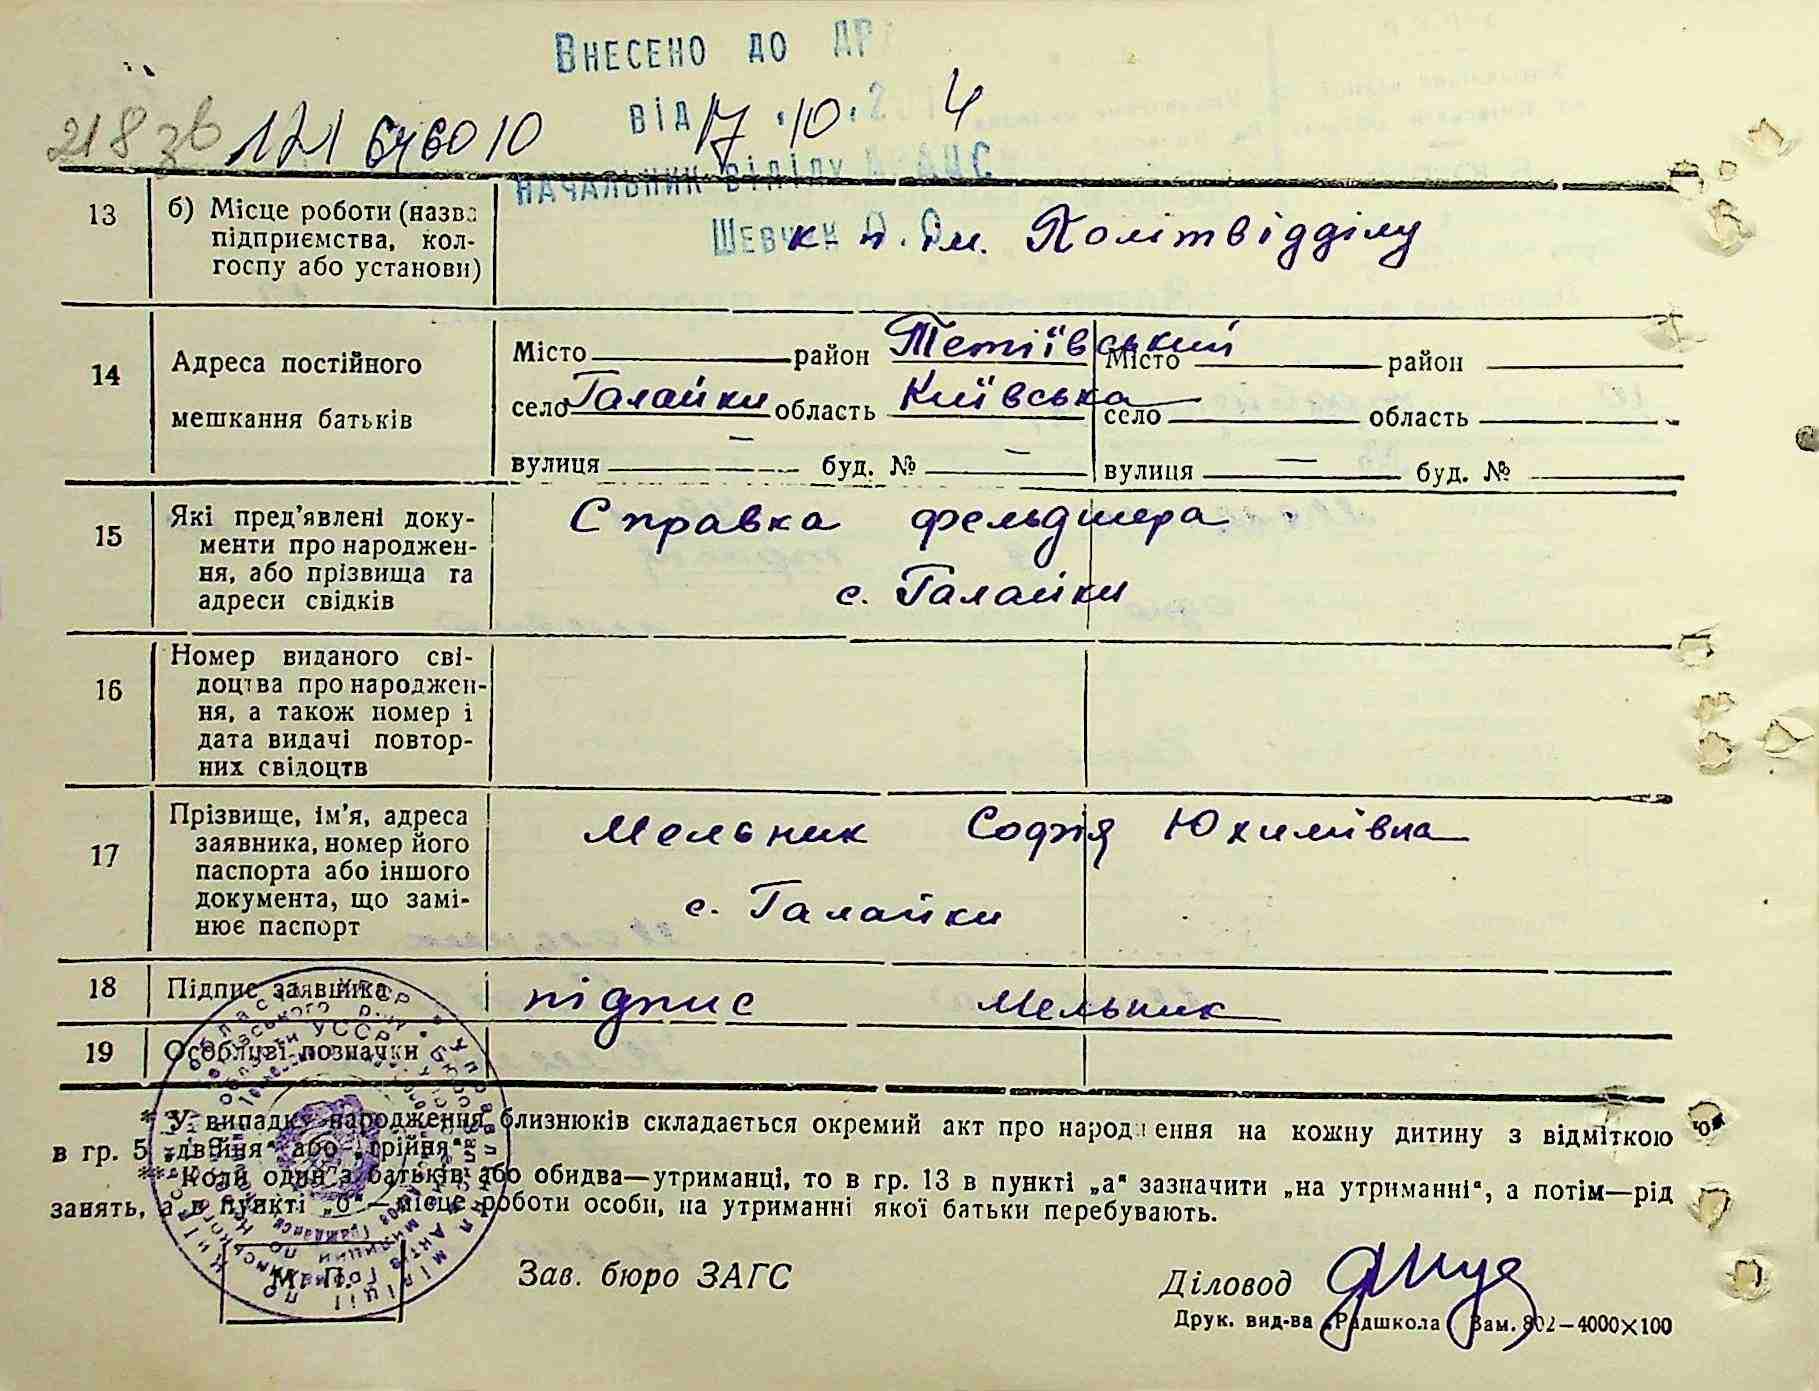 Внесено до ДР
218 зв 121 646010 від 17.10. 4
Начальник відділу
Шевчук О. О.
13 б) Місце роботи (назва підприємства, колгоспу або установи)
к п. ім. Політвідділу
14 Адреса постійного мешкання батьків
Місто район Тетіївський Місто район
село Галайки область Київська село область
вулиця — буд. № — вулиця — буд. №
15 Які пред'явлені документи про народження, або прізвища та адреси свідків
Справка фельдшера
с. Галайки
16 Номер виданого свідоцтва про народження, а також номер і дата видачі повторних свідоцтв
17 Прізвище, ім'я, адреса заявника, номер його паспорта або іншого документа, що замінює паспорт
Мельник Софія Юхимівна
с. Галайки
18 Підпис заявника підпис Мельник
19 Особливі позначки
* У випадку народження близнюків складається окремий акт про народження на кожну дитину з відміткою
в гр. 5 „двійня“ або „трійня“.
** Коли один з батьків або обидва—утриманці, то в гр. 13 в пункті „а“ зазначити „на утриманні“, а потім—рід
занять, а в пункті „б“—місце роботи особи, на утриманні якої батьки перебувають.
М. П. Зав. бюро ЗАГС Діловод
Друк. вид-ва „Радшкола“ Зам. 802—4000×100